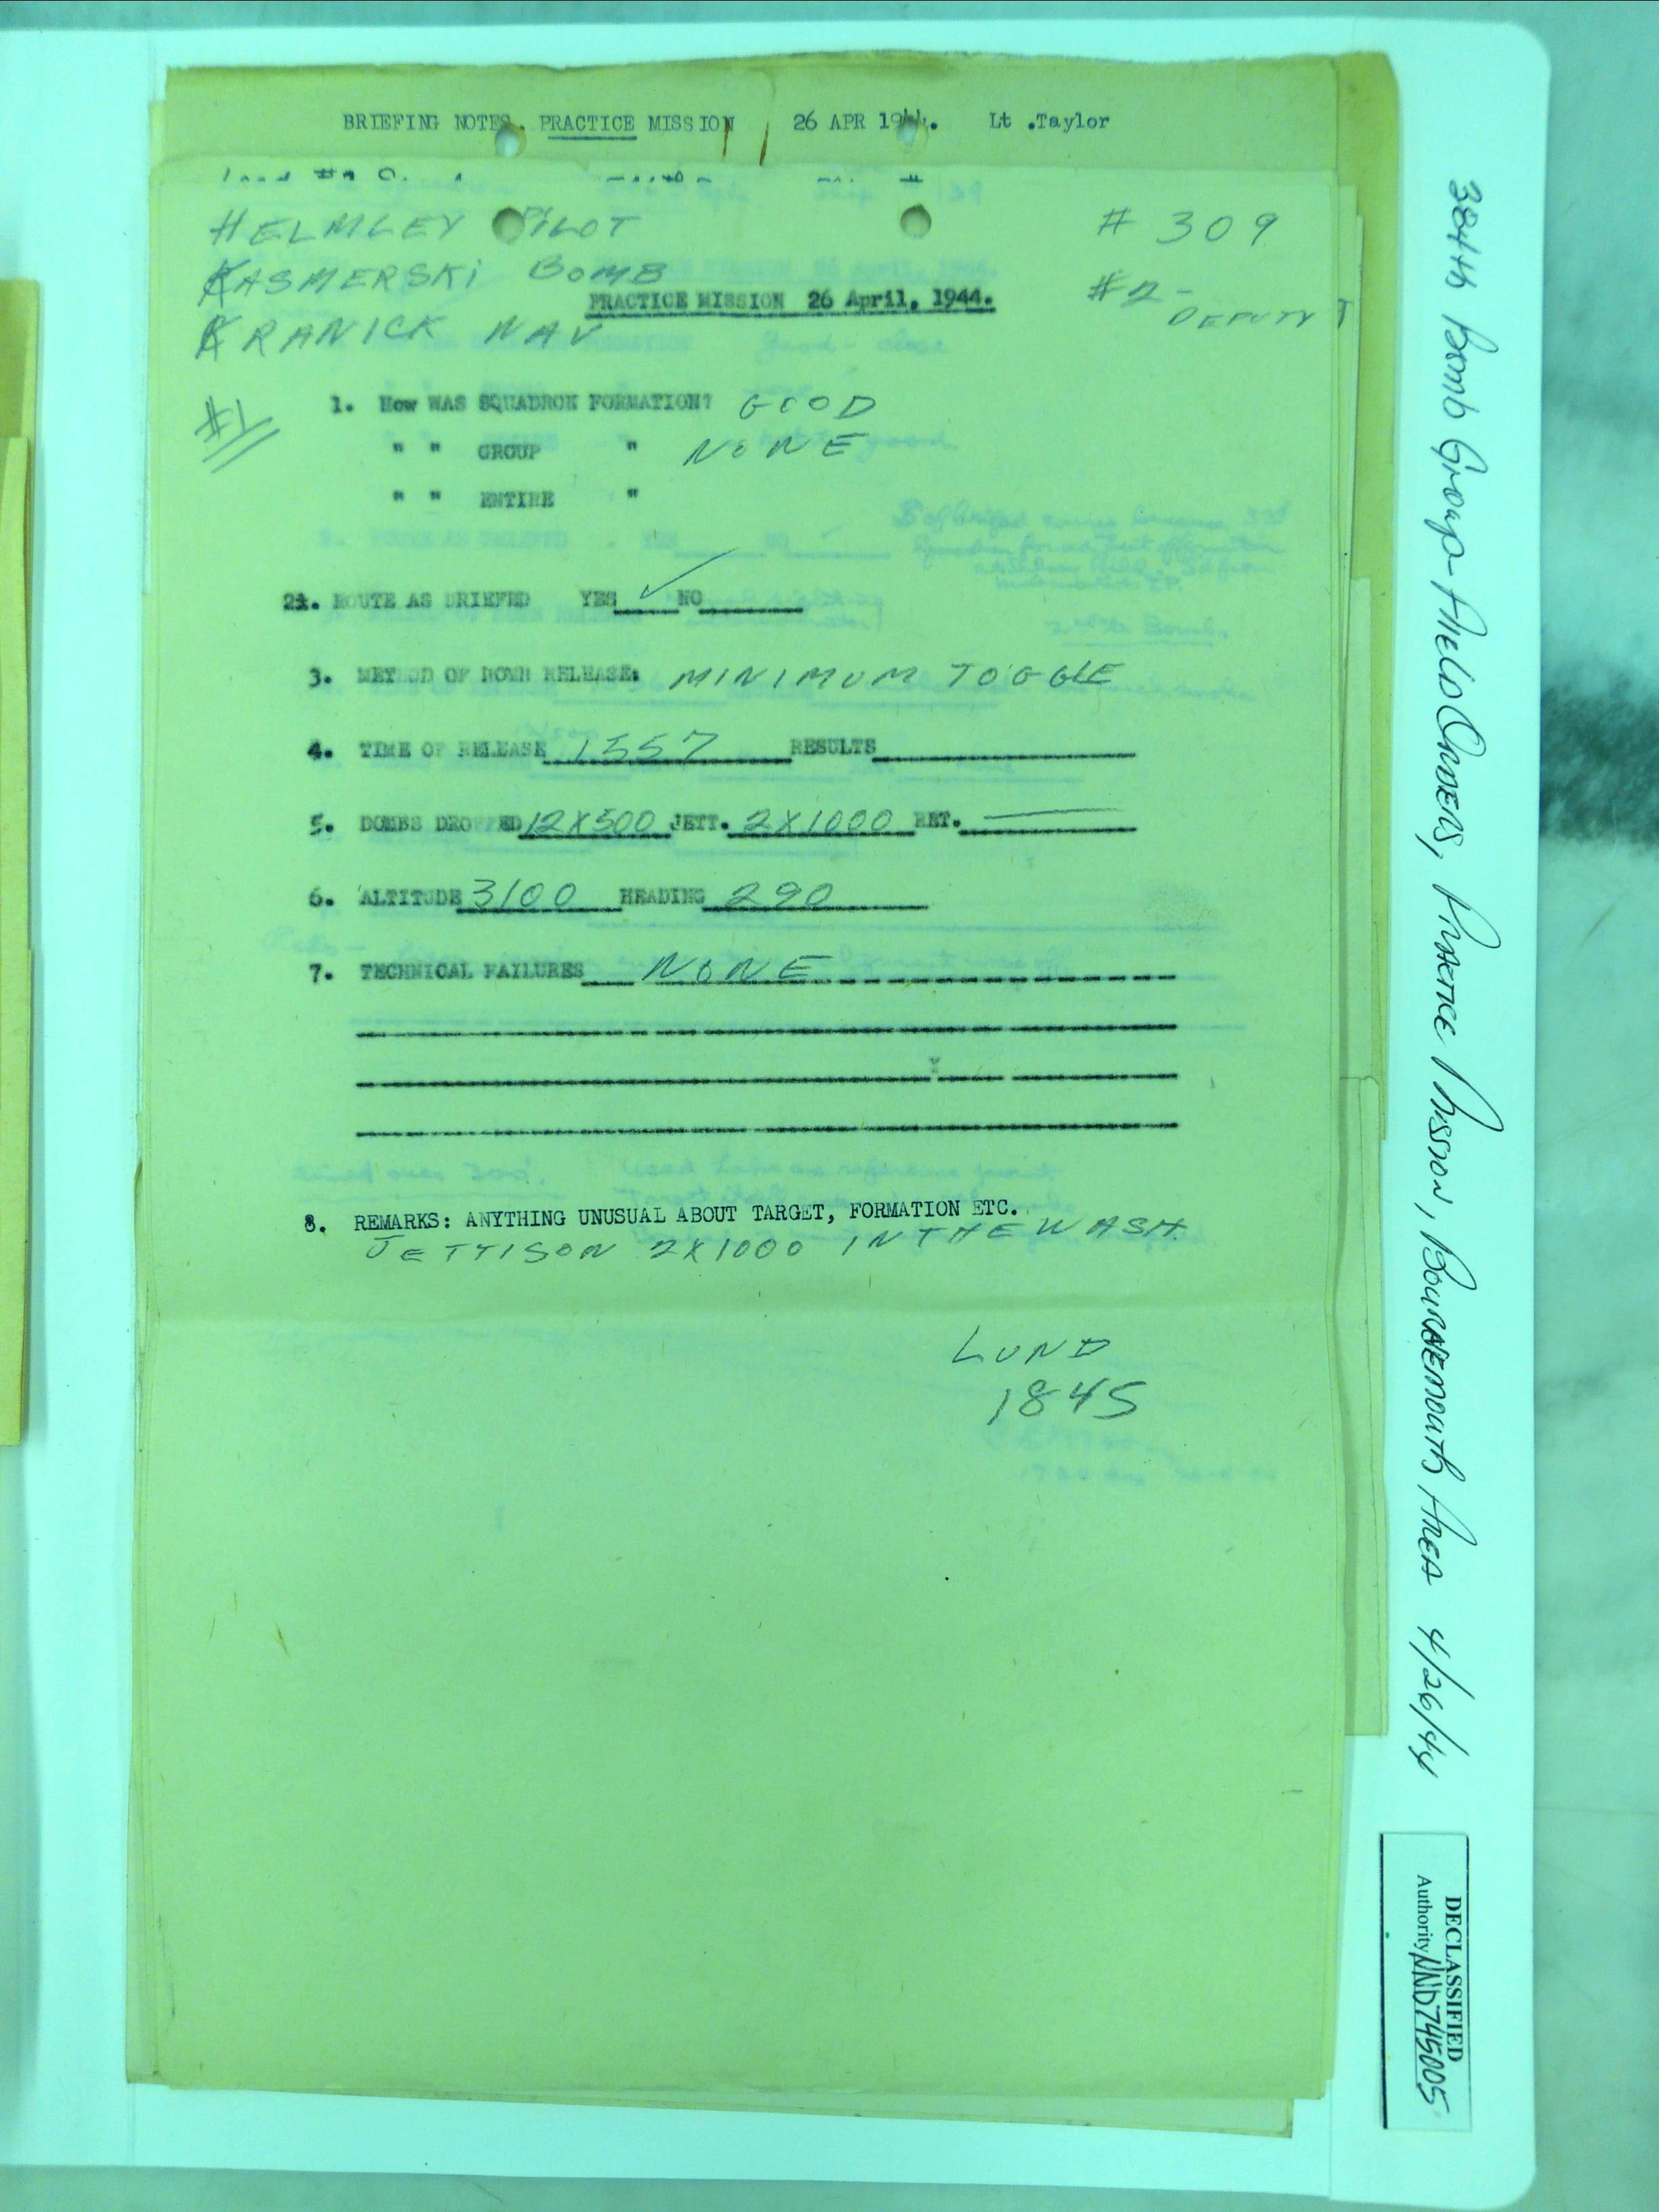 BRIEFING NOTES. PRACTICE MISSION 26 APR 1944. Lt .Taylor
HELMLEY PILOT # 309
KASMERSKI BOMB #2-
PRACTICE MISSION 26 April, 1944. DEPUTY
KRANICK NAV
#1
1. How WAS SQUADRON FORMATION? GOOD
" " GROUP " NONE
" " ENTIRE "
2. ROUTE AS BRIEFED YES ✓ NO
3. METHOD OF BOMB RELEASE: MINIMUM TOGGLE
4. TIME OF RELEASE 1557 RESULTS
5. BOMBS DROPPED 12X500 JETT. 2X1000 RET. —
6. ALTITUDE 3100 HEADING 290
7. TECHNICAL FAILURES NONE
8. REMARKS: ANYTHING UNUSUAL ABOUT TARGET, FORMATION ETC.
JETTISON 2X1000 IN THE WASH.
LUND
1845
384th Bomb Group - Field Orders, Practice Mission, Bournemouth Area 4/26/44
DECLASSIFIED
Authority NND745005